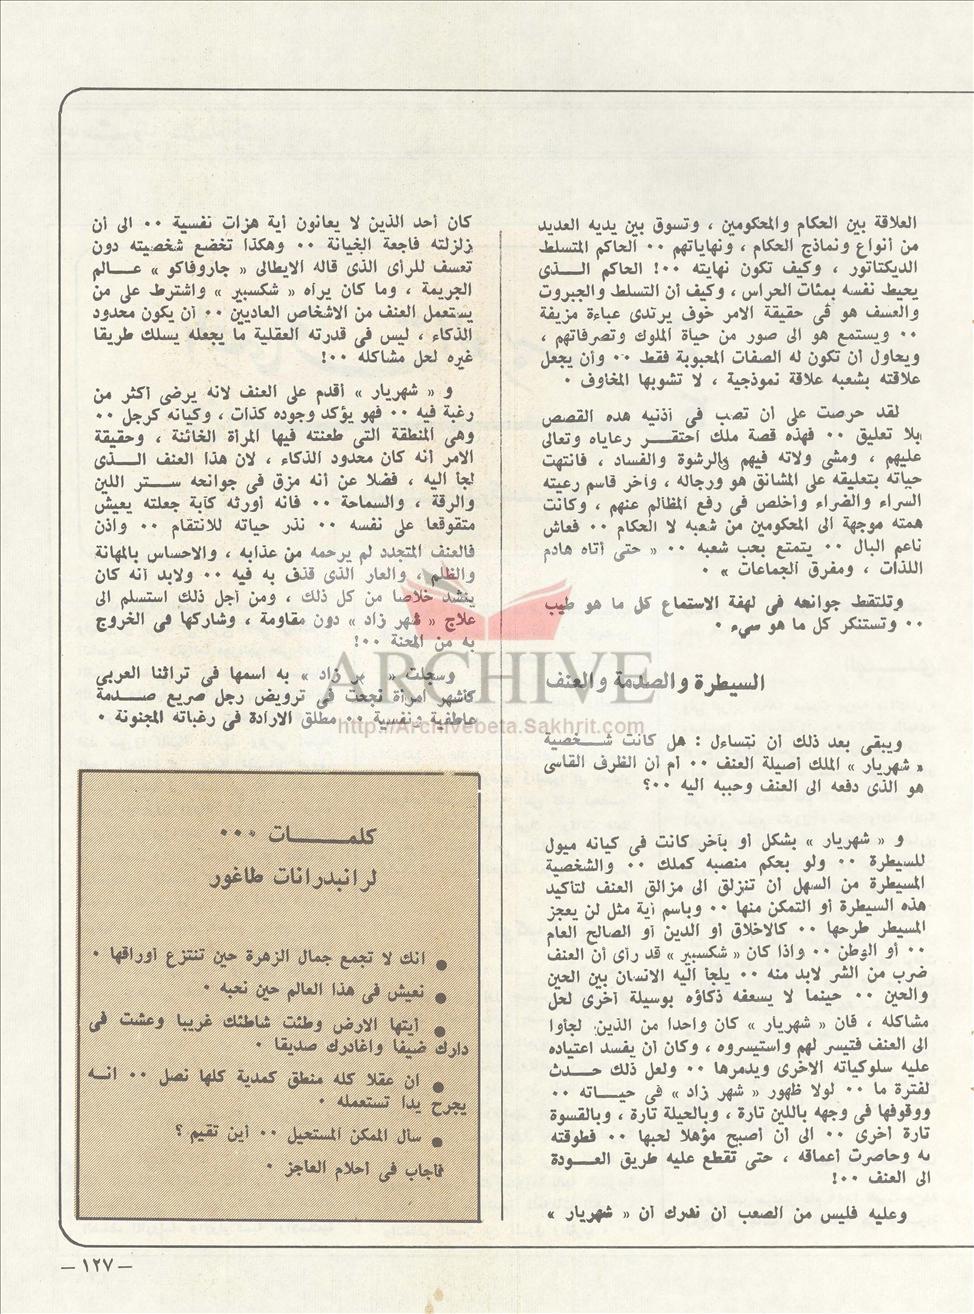 العلاقة بين الحكام والمحكومين ، وتسوق بين يديه العديد
من أنواع ونماذج الحكام ، ونهاياتهم ٠٠ الحاكم المتسلط
الديكتاتور ، وكيف تكون نهايته ٠٠! الحاكم الـــذى
يحيط نفسه بمئات الحراس ، وكيف أن التسلط والجبروت
والعسف هو فى حقيقة الامر خوف يرتدى عباءة مزيفة
٠٠ ويستمع هو الى صور من حياة الملوك وتصرفاتهم ،
ويحاول أن تكون له الصفات المحبوبة فقط ٠٠ وأن يجعل
علاقته بشعبه علاقة نموذجية ، لا تشوبها المخاوف ٠
لقد حرصت على أن تصب فى أذنيه هذه القصص
بلا تعليق ٠٠ فهذه قصة ملك احتقـــر رعاياه وتعالى
عليهم ، ومشى ولاته فيهم بالرشوة والفساد ، فانتهت
حياته بتعليقه على المشانق هو ورجاله ، وآخر قاسم رعيته
السراء والضراء وأخلص فى رفع المظالم عنهم ، وكانت
همته موجهة الى المحكومين من شعبه لا الحكام ٠٠ فعاش
ناعم البال ٠٠ يتمتع بحب شعبه ٠٠ « حتى أتاه هادم
اللذات ، ومفرق الجماعات » ٠
وتلتقط جوانحه فى لهفة الاستماع كل ما هو طيب
٠٠ وتستنكر كل ما هو سىء ٠
السيطرة والصدمة والعنف
ويبقى بعد ذلك أن نتساءل : هل كانت شــخصية
« شهريار » الملك أصيلة العنف ٠٠ أم أن الظرف القاسى
هو الذى دفعه الى العنف وحببه اليه ٠٠؟
و « شهريار » بشكل أو بآخر كانت فى كيانه ميول
للسيطرة ٠٠ ولو بحكم منصبه كملك ٠٠ والشخصية
المسيطرة من السهل أن تنزلق الى مزالق العنف لتأكيد
هذه السيطرة أو التمكن منها ٠٠ وباسم أية مثل لن يعجز
المسيطر طرحها ٠٠ كالاخلاق أو الدين أو الصالح العام
٠٠ أو الوطن ٠٠ واذا كان « شكسبير » قد رأى أن العنف
ضرب من الشر لابد منه ٠٠ يلجأ اليه الانسان بين الحين
والحين ٠٠ حينما لا يسعفه ذكاؤه بوسيلة أخرى لحل
مشاكله ، فان « شهريار » كان واحدا من الذين لجأوا
الى العنف فتيسر لهم واستيسروه ، وكان أن يفسد اعتياده
عليه سلوكياته الاخرى ويدمرها ٠٠ ولعل ذلك حــدث
لفترة ما ٠٠ لولا ظهور « شهر زاد » فى حيـــاته ٠٠
ووقوفها فى وجهه باللين تارة ، وبالحيلة تارة ، وبالقسوة
تارة أخرى ٠٠ الى أن أصبح مؤهلا لحبها ٠٠ فطوقته
به وحاصرت أعماقه ، حتى تقطع عليه طريق العــودة
الى العنف ٠٠!
وعليه فليس من الصعب أن ندرك أن « شهريار »
كان أحد الذين لا يعانون أية هزات نفسية ٠٠ الى أن
زلزلته فاجعة الخيانة ٠٠ وهكذا تخضع شخصيته دون
تعسف للرأى الذى قاله الايطالى « جاروفاكو » عـــالم
الجريمة ، وما كان يراه « شكسبير » واشترط على من
يستعمل العنف من الاشخاص العاديين ٠٠ أن يكون محدود
الذكاء ، ليس فى قدرته العقلية ما يجعله يسلك طريقا
غيره لحل مشاكله ٠٠!
و « شهريار » أقدم على العنف لانه يرضى أكثر من
رغبة فيه ٠٠ فهو يؤكد وجوده كذات ، وكيانه كرجل ٠٠
وهى المنطقة التى طعنته فيها المرأة الخائنة ، وحقيقة
الامر أنه كان محدود الذكاء ، لان هذا العنف الـــذى
لجأ اليه ، فضلا عن أنه مزق فى جوانحه ســـتر اللين
والرقة ، والسماحة ٠٠ فانه أورثه كآبة جعلته يعيش
متقوقعا على نفسه ٠٠ نذر حياته للانتقام ٠٠ واذن
فالعنف المتجدد لم يرحمه من عذابه ، والاحساس بالمهانة
والظلم ، والعار الذى قذف به فيه ٠٠ ولابد أنه كان
ينشد خلاصا من كل ذلك ، ومن أجل ذلك استسلم الى
علاج « شهر زاد » دون مقاومة ، وشاركها فى الخروج
به من المحنة ٠٠!
وسجلت « زاد » به اسمها فى تراثنا العربى
كأشهر امرأة نجحت فى ترويض رجل صريع صــدمة
عاطفية ونفسية ٠٠ مطلق الارادة فى رغباته المجنونة ٠
كلمـــــات ٠٠٠
لرانبدرانات طاغور
● انك لا تجمع جمال الزهرة حين تنتزع أوراقها ٠
● نعيش فى هذا العالم حين نحبه ٠
● أيتها الارض وطئت شاطئك غريبا وعشت فى
دارك ضيفا وأغادرك صديقا ٠
● ان عقلا كله منطق كمدية كلها نصل ٠٠ انـــه
يجرح يدا تستعمله ٠
● سأل الممكن المستحيل ٠٠ أين تقيم ؟
فأجاب فى أحلام العاجز ٠
ARCHIVE
http://Archivebeta.Sakhrit.com
— ١٢٧ —